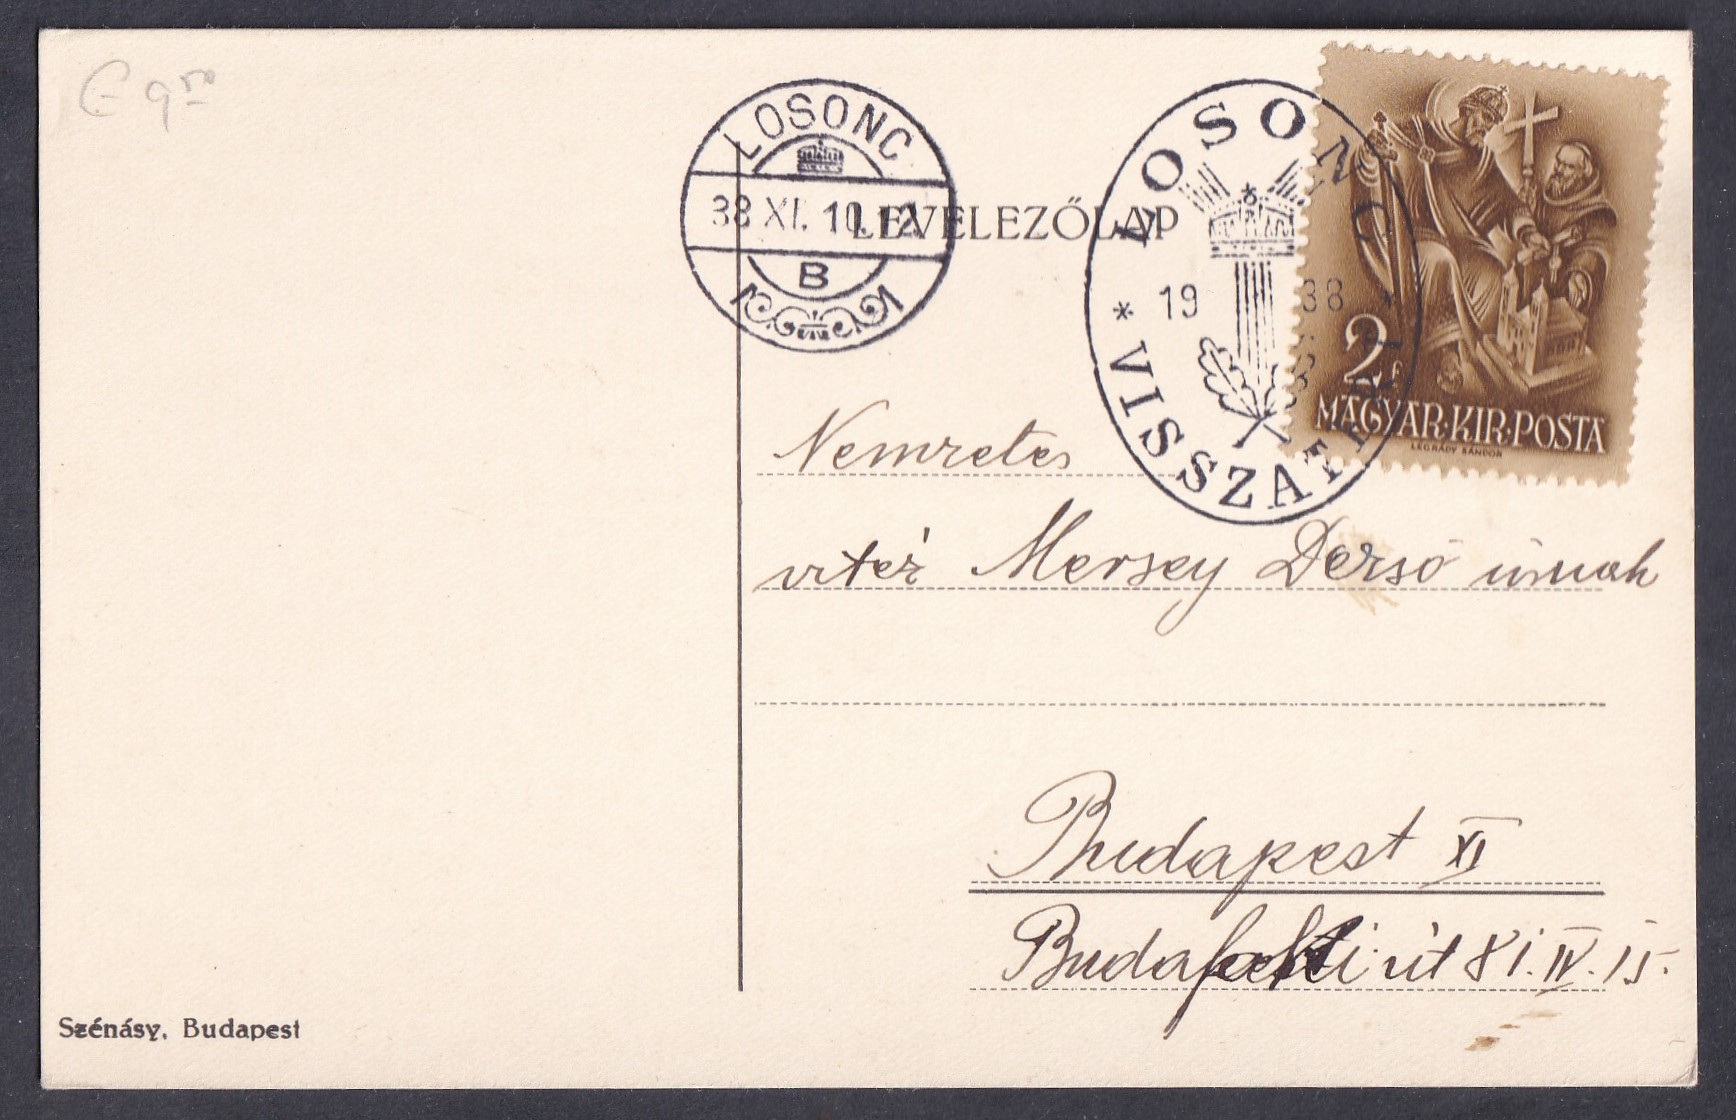 € 9⁵⁰
LOSONC
38 XI. 10. 12
B
LEVELEZŐLAP
LOSONC
* 19 38
VISSZATÉRT
2 f
MAGYAR·KIR·POSTA
LÉGRÁDY SÁNDOR
Nemzetes
vitéz Mersey Dezső úrnak
Budapest XI
Budafoki út 81. IV. 15.
Szénásy, Budapest